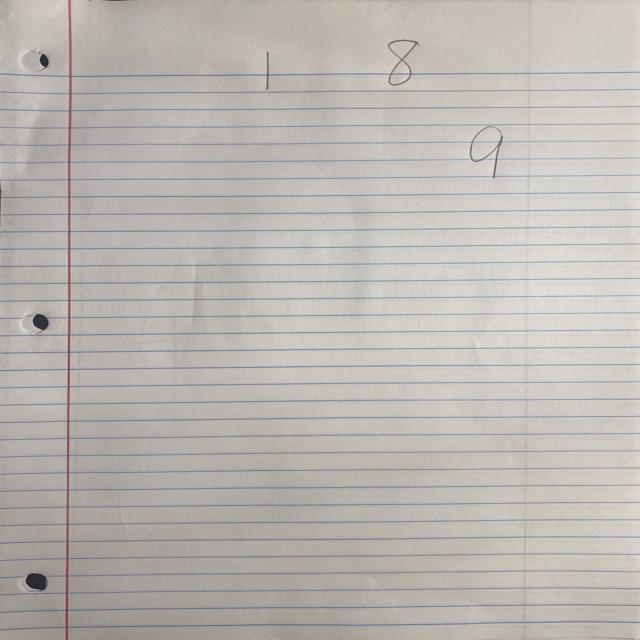 1 8
9